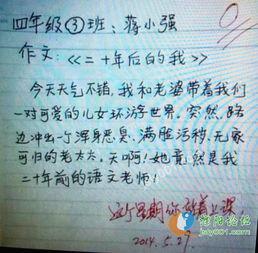 四年级③班、蒋小强
作文：《二十年后的我》
今天天气不错，我和老婆带着我们
一对可爱的儿女环游世界。突然，路
边冲出一个浑身恶臭，满脸污秽，无家
可归的老太太，天啊！她竟然是我
二十年前的语文老师！
0
这个星期你站着上课
2014.5.27.
濮阳论坛
jsly001.com